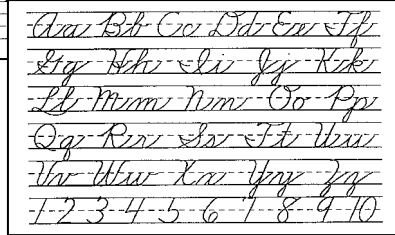 Aa Bb Cc Dd Ee Ff
Gg Hh Ii Jj Kk
Ll Mm Nn Oo Pp
Qq Rr Ss Tt Uu
Vv Ww Xx Yy Zz
1 2 3 4 5 6 7 8 9 10